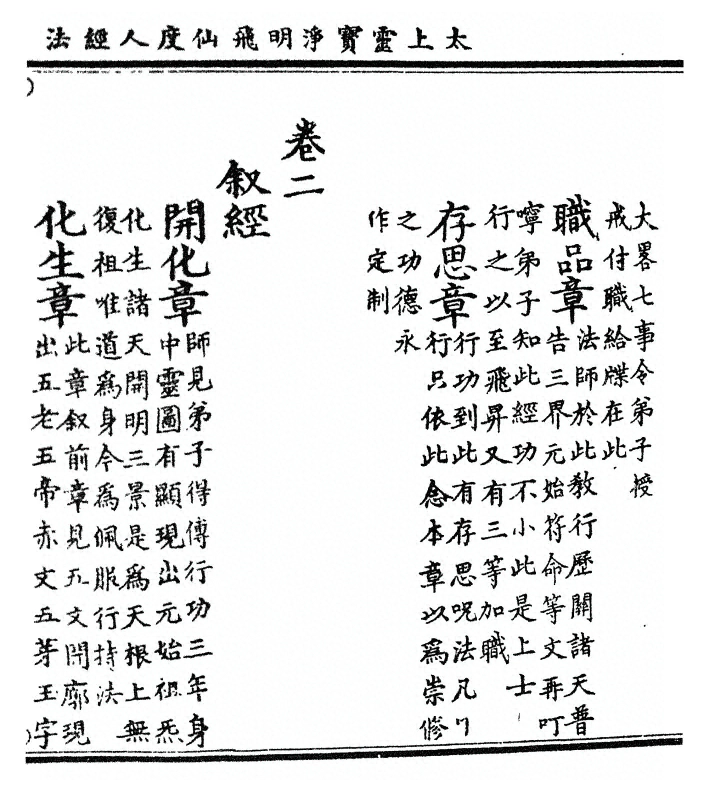 太上靈寶淨明飛仙度人經法
大畧七事令弟子授
戒付職給牒在此
職品章 法師於此教行歷關諸天普
告三界元始符命等文再叮
嚀弟子知此經功不小此是上士
行之以至飛昇又有三等加職
存思章 行功到此有存思呪法凡
行只依此念本章以爲崇修
之功德永
作定制
卷二
叙經
開化章 師見弟子得傳行功三年身
中靈圖有顯現出元始祖炁
化生諸天開明三景是爲天根上無
復祖唯道爲身今爲佩服行持法
化生章 此章叙前章見五文開廓現
出五老五帝赤文五芽玉字